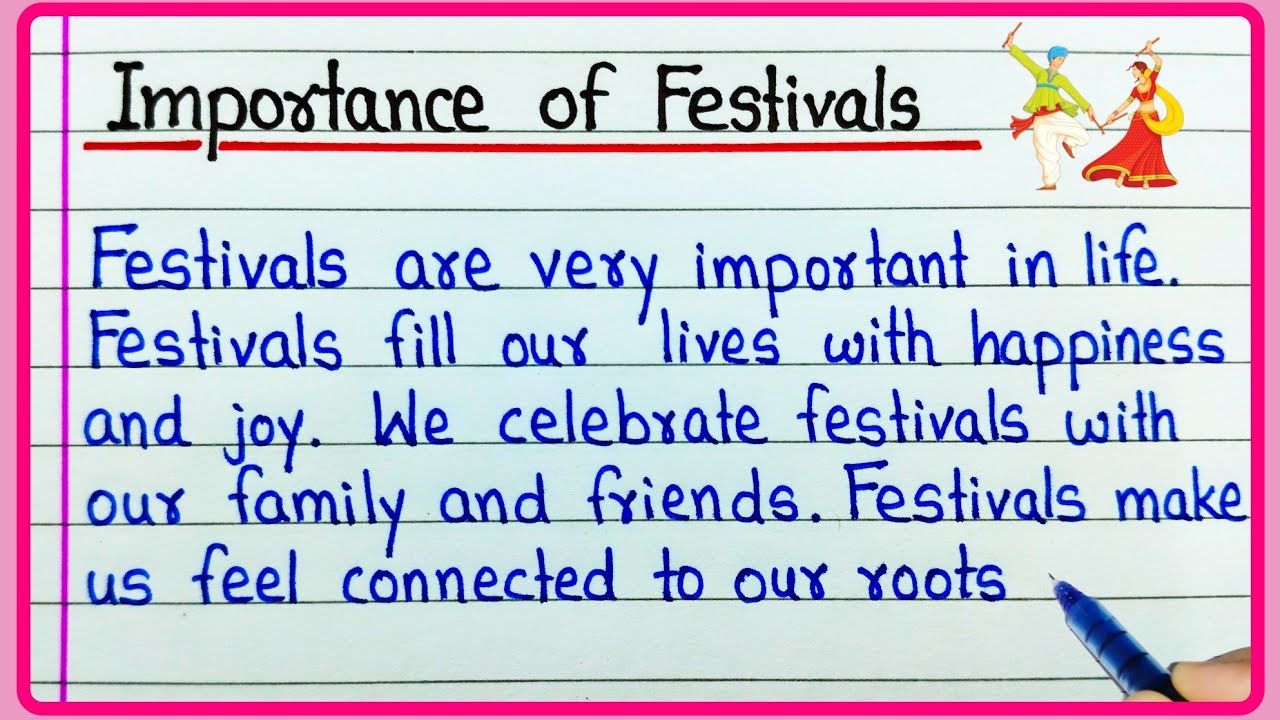 Importance of Festivals
Festivals are very important in life.
Festivals fill our lives with happiness
and joy. We celebrate festivals with
our family and friends. Festivals make
us feel connected to our roots